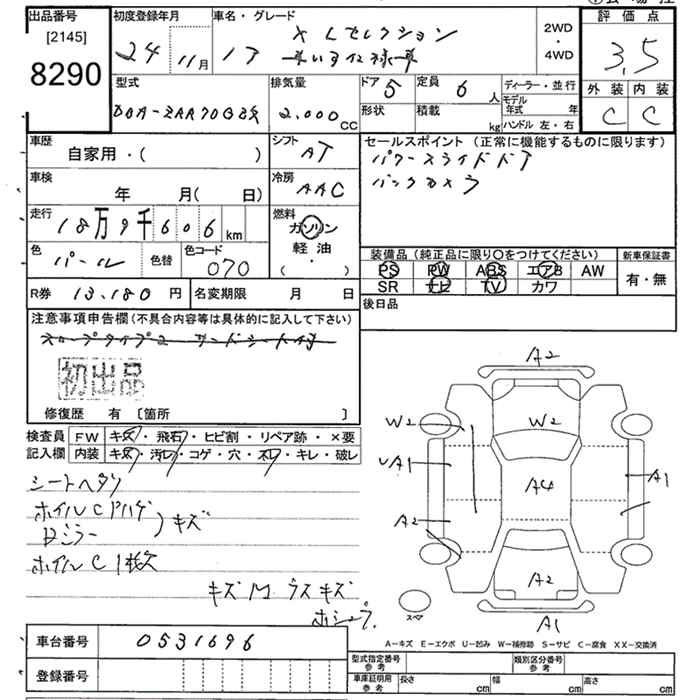 出品番号 初度登録年月 車名・グレード 評価点
[2145] X Lセレクション 2WD
8290 24年 11月 ・
車いす仕様車 4WD 3.5
外装 内装
型式 排気量 ドア 5 定員 6人 ディーラー・並行
DBA-ZRR70G改 2,000CC 形状 積載 kg モデル年式 年 C C
ハンドル 左・右
車歴 自家用・( ) シフト AT セールスポイント(正常に機能するものに限ります)
パワースライドドア
車検 年 月( 日) 冷房 AAC バックカメラ
走行 18万9千606km 燃料 ガソリン
軽油
( ・ )
色 パール 色替 色コード 070 装備品(純正品に限り○をつけてください) 新車保証書
PS PW ABS エアB AW 有・無
R券 13,180円 名変期限 月 日 SR ナビ TV カワ
後日品
注意事項申告欄(不具合内容等は具体的に記入して下さい)
スロープタイプ2 サードシート付
初出品
修復歴 有 [箇所 ]
検査員 FW キズ・飛石・ヒビ割・リペア跡・×要
記入欄 内装 キズ・汚れ・コゲ・穴・ネジ・キレ・破レ
シートヘタリ
ホイルC
ミラー キズ
ホイルC 1枚欠
キズM ラスキズ
A2
W2 W2
A1 A1
A4
A2
A2
スペア
A1
A-キズ E-エクボ U-凹み W-補修跡 S-サビ C-腐食 XX-交換済
車台番号 0531696
登録番号
型式指定番号参考 類別区分番号参考
車庫証明用参考 長さ cm 幅 cm 高さ cm